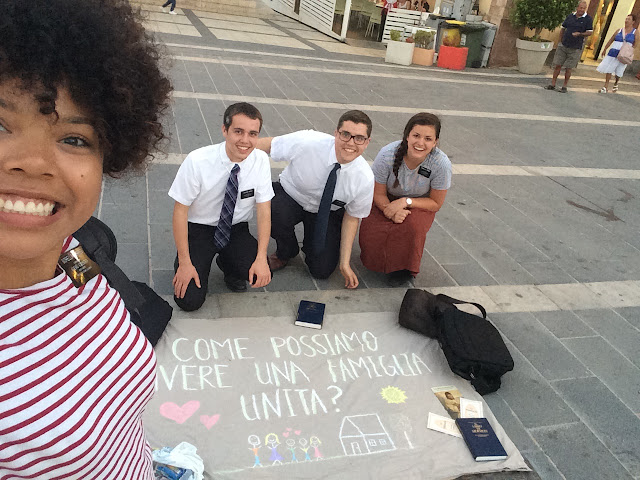 COME POSSIAMO
VERE UNA FAMIGLIA
UNITA?